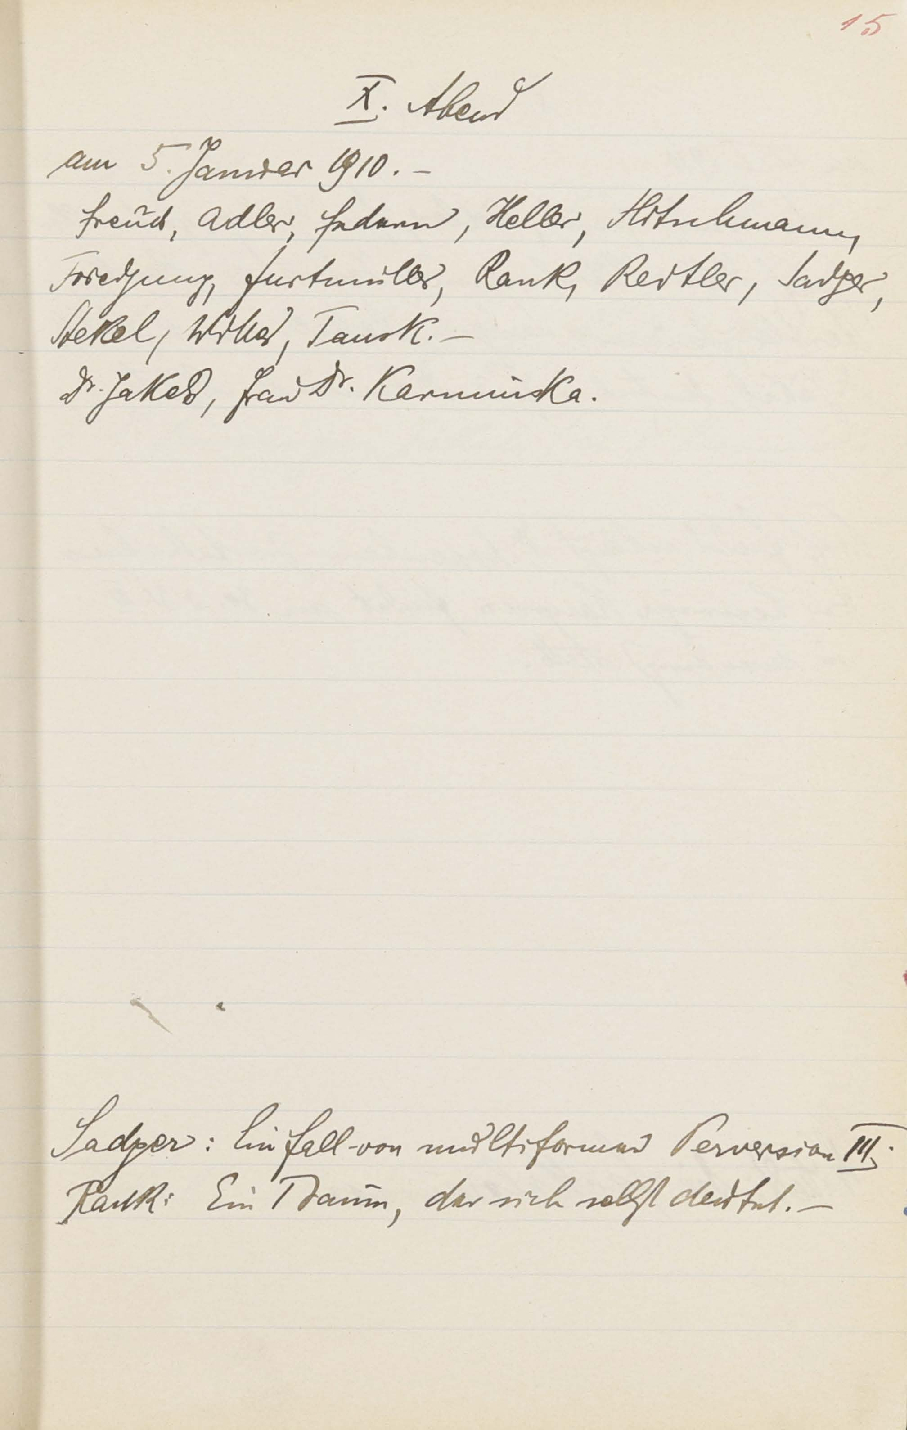 15
X. Abend
am 5. Januar 1910. –
Freud, Adler, Federn, Heller, Hitschmann,
Friedjung, Furtmüller, Rank, Reitler, Sadger,
Stekel, Wittels, Tausk. –
Dr. Jekels, Frau Dr. Karminska.
Sadger: Ein Fall von multiformer Perversion III.
Rank: Ein Traum, der sich selbst deutet. –